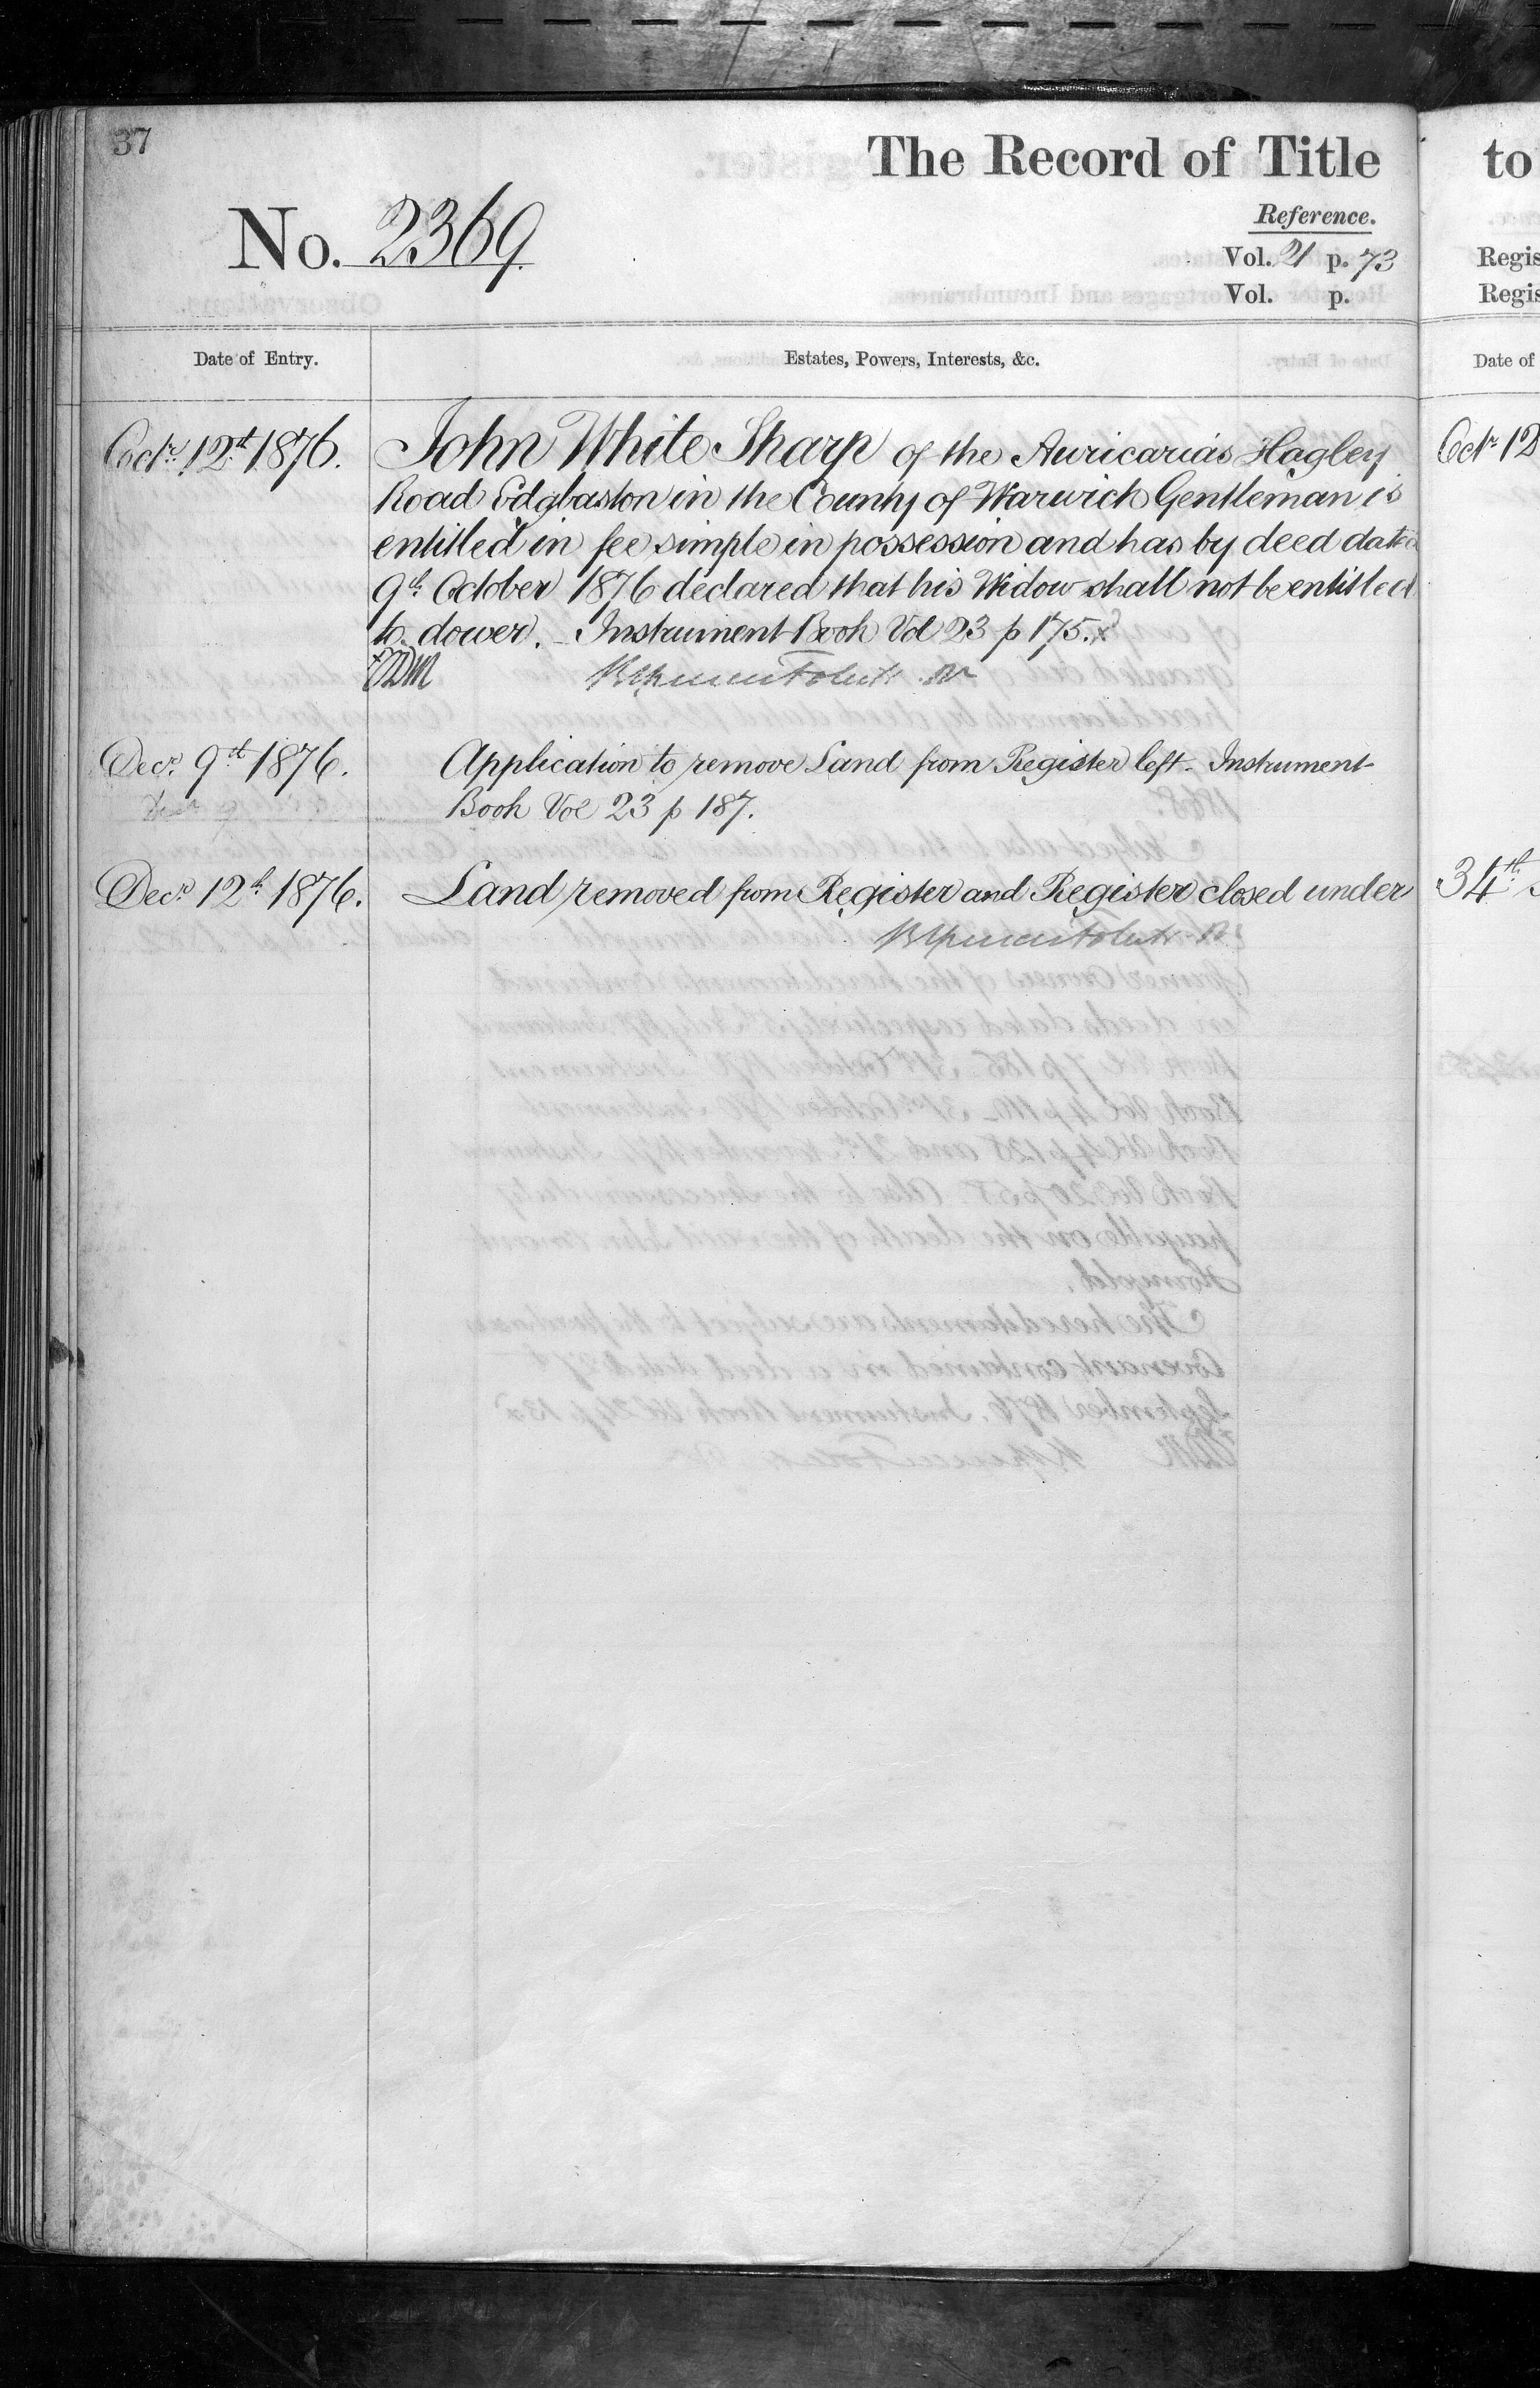 37
The Record of Title
No. 2369.
Reference.
Vol. 21 p. 73
Vol. p.
Date of Entry.
Estates, Powers, Interests, &c.
Octr. 12th 1876.
John White Sharp of the Auricaria's Hagley
Road Edgbaston in the County of Warwick Gentleman is
entitled in fee simple in possession and has by deed dated
9th October 1876 declared that his Widow shall not be entitled
to dower. – Instrument Book Vol 23 p 175. x
Decr. 9th 1876.
Application to remove Land from Register left. Instrument
Book Vol 23 p 187.
Decr. 12th 1876.
Land removed from Register and Register closed under
to
Regis
Regis
Date of
Octr 12
34th